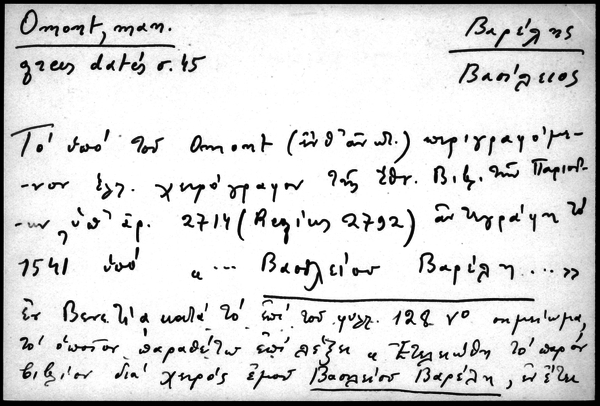 Omont, man.
grecs datés σ. 45
Βαρέλης
Βασίλειος
Τό ὑπό τοῦ Omont (ἔνθ' ἀνωτ.) περιγραφόμε-
-νον ἑλλ. χειρόγραφον τῆς Ἐθν. Βιβλ. τῶν Παρισί-
-ων, ὑπ' ἀρ. 2714 (Regius 2792) ἀντεγράφη τό
1541 ὑπό « ... Βασιλείου Βαρέλη ... »
ἐν Βενετίᾳ κατά τό ἐπί τοῦ φύλλ. 128 vο σημείωμα,
τό ὁποῖον παραθέτω ἐπί λέξει « Ἐτελειώθη τό παρόν
βιβλίον διά χειρός ἐμοῦ Βασιλείου Βαρέλη, ἐν ἔτει